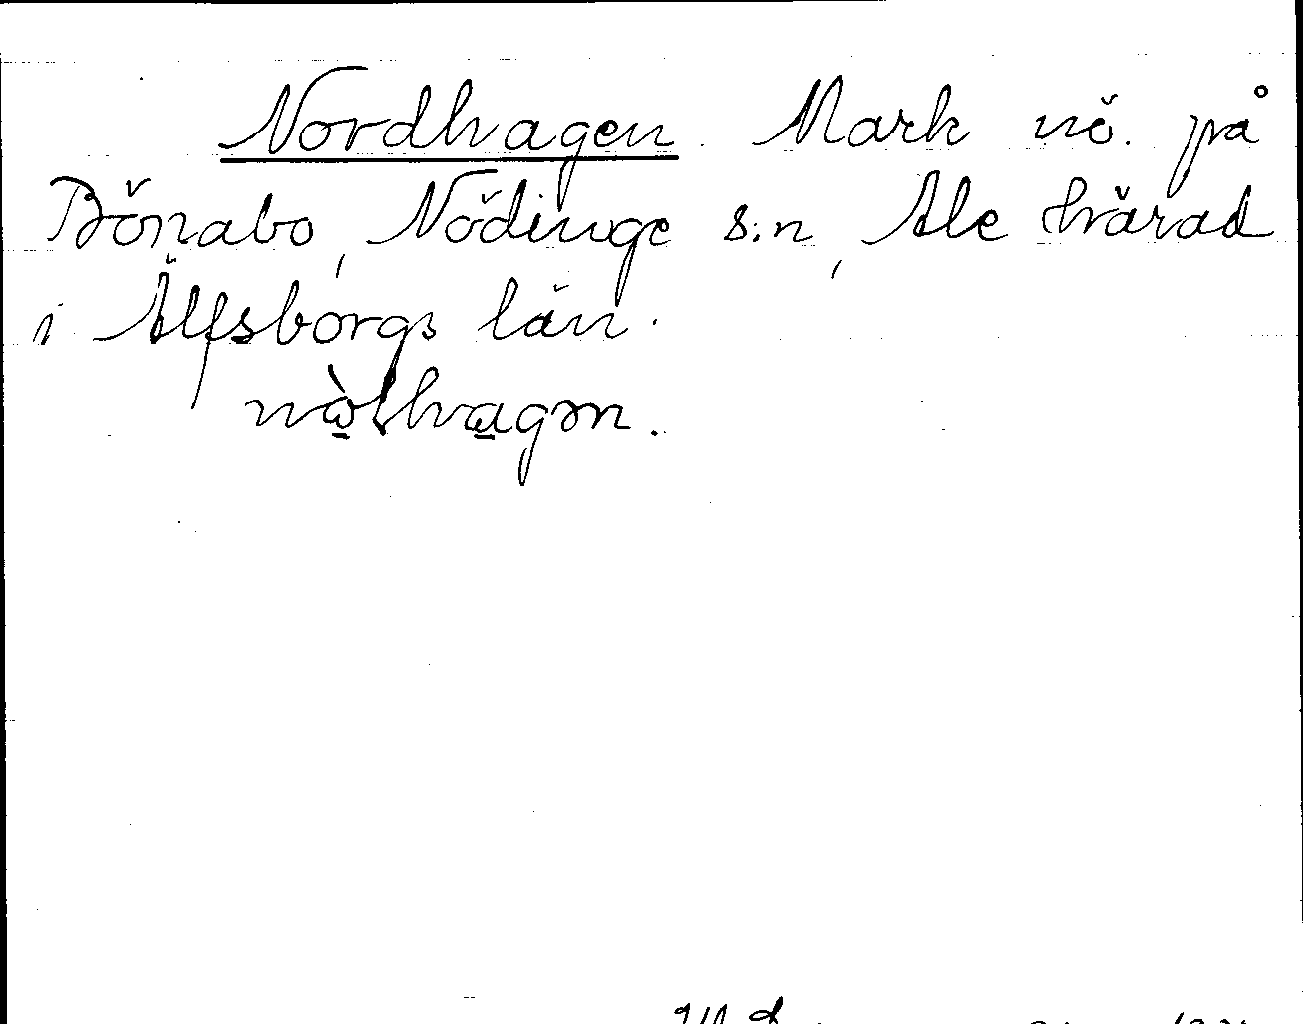 Nordhagen. Mark nö. på
Bönabo, Nödinge s:n, Ale härad
i Älfsborgs län.